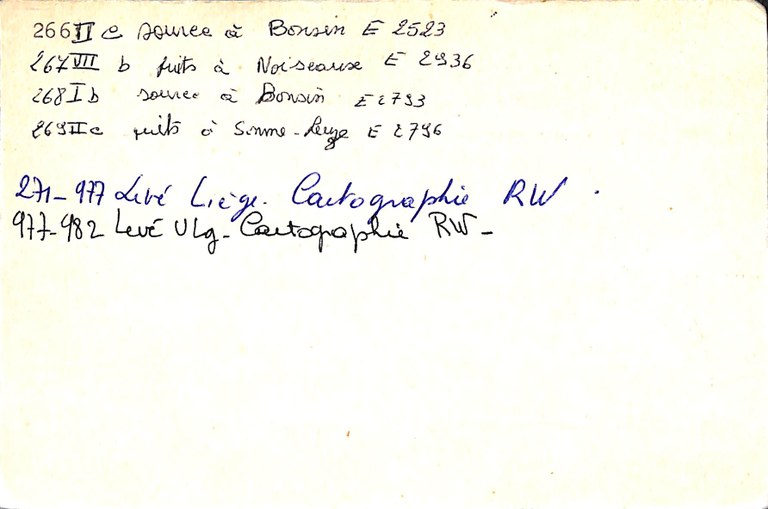 266 II c source à Bonsin E 2523
267 VII b puits à Noiseaux E 2936
268 I b source à Bonsin E 2793
269 II c puits à Somme-Leuze E 2796
271-977 Levé Liège. Cartographie RW.
977-982 Levé ULg - Cartographie RW -